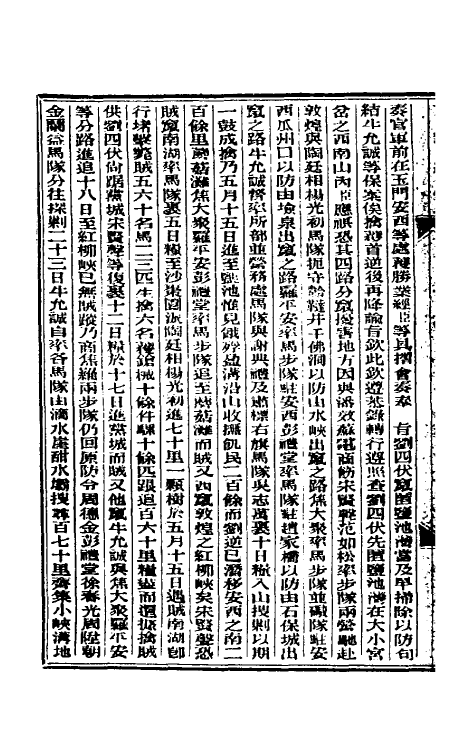 奏官軍前在玉門安西等處獲勝業經臣等具摺會奏奉　旨劉四伏竄匿鹽池灣當及早掃除以防勾
結牛允誠等保案俟擒渠首逆後再降諭旨欽此欽遵恭錄轉行遵照查劉四伏先匿鹽池灣在大小宮
岔之西南山內臣應祺恐其四路分竄擾害地方因與潘效蘇電商飭宋賢聲范如松率步隊兩營馳赴
敦煌與陶廷相楊光初馬隊扼守 井千佛洞以防山水峽出竄之路焦大聚率馬步隊並礮隊駐安
西瓜州口以防由塊泉出竄之路羅平安率馬步隊駐安西彭禮堂率馬隊駐趙家橋以防由石保城出
竄之路牛允誠督率所部並營務處馬隊與謝典禮及肅標右旗馬隊吳志萬裹十日糧入山搜剿以期
一鼓成擒乃五月十五日進至鹽池惟見餓殍盈溝沿山收撫飢民二百餘而劉逆已潛移安西之南二
百餘里蘑菇灘焦大聚羅平安彭禮堂率馬步隊追至蘑菇灘而賊又西竄敦煌之紅柳峽矣宋賢聲恐
賊竄南湖率馬隊裹五日糧至沙棗園派陶廷相楊光初進七十里一顆樹於五月十五日遇賊南湖卽
行堵擊斃賊五六十名馬二三匹生擒六名 槍械十餘件騾十餘匹跟追百六十里糧盡而還據擒賊
供劉四伏尚踞黨城宋賢聲等復裹十二日糧於十七日進黨城而賊又他竄牛允誠與焦大聚羅平安
等分路進追十八日至紅柳峽已無賊蹤乃商焦羅兩步隊仍回原防令周德金彭禮堂徐春光周陞朝
金關益馬隊分往探剿二十三日牛允誠自率各馬隊由滴水崖甜水 搜尋百七十里齊集小峽溝地